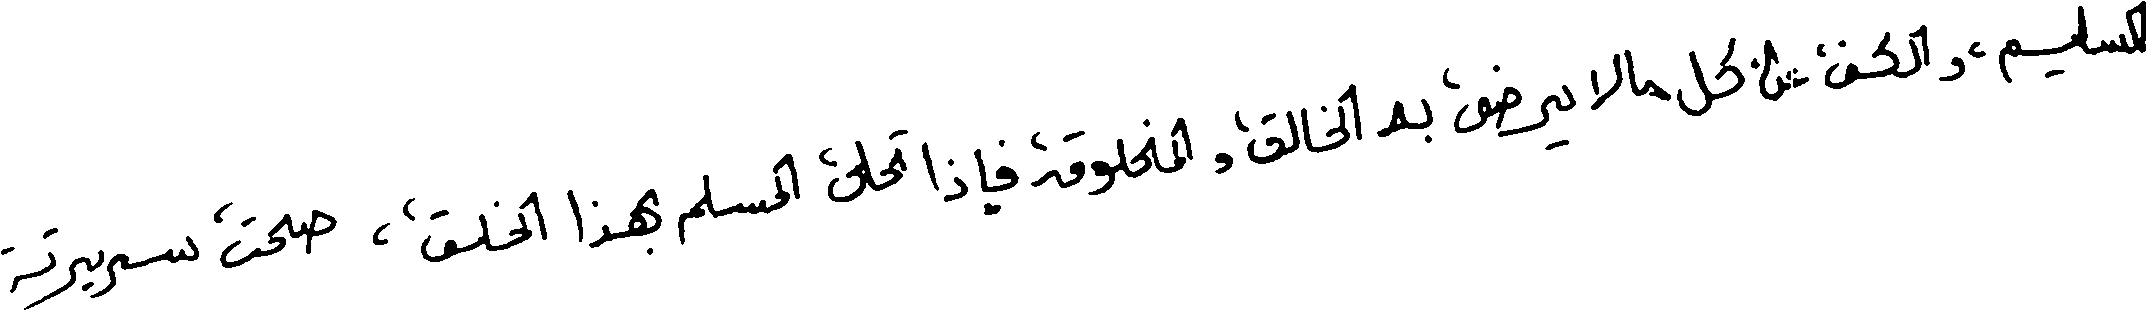 السليم، والكف عن كل مالا يرضى به الخالق والمخلوق، فإذا تحلى المسلم بهذا الخلق، صلحت سريرته